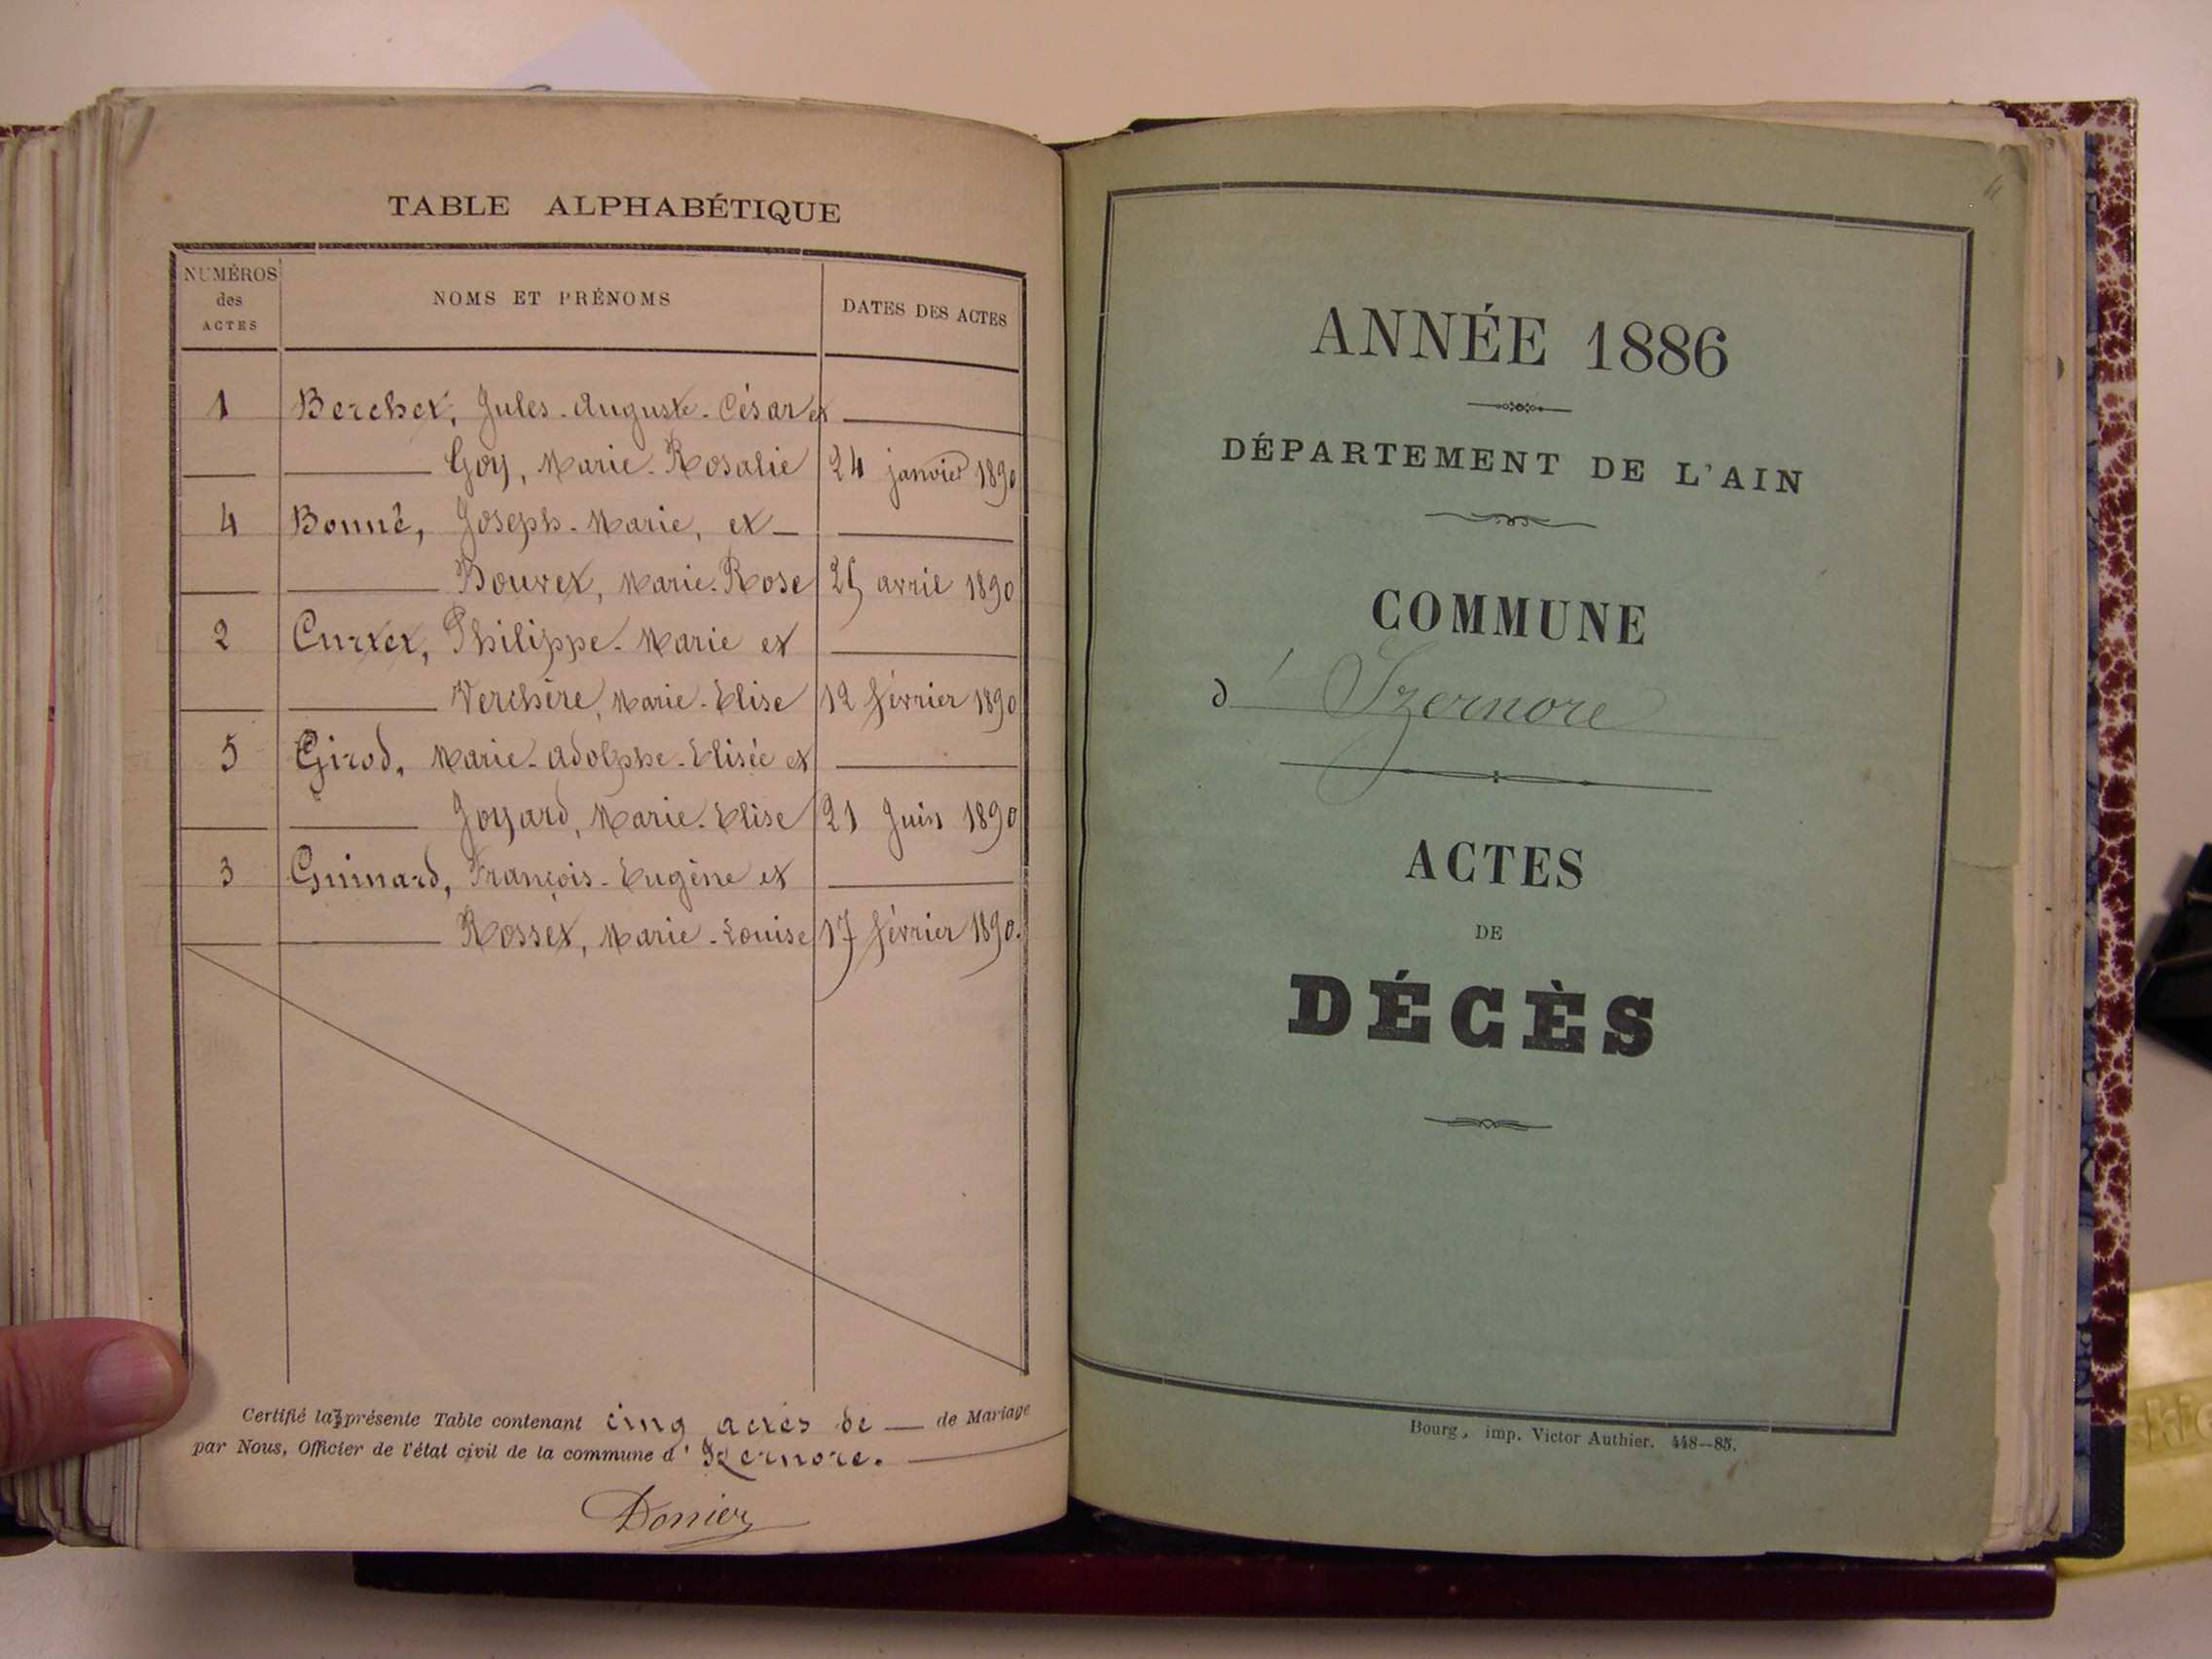 TABLE ALPHABÉTIQUE
NUMÉROS des ACTES NOMS ET PRÉNOMS DATES DES ACTES
1 Berchet, Jules-Auguste-César et
Goy, Marie-Rosalie 24 janvier 1890
4 Bonnê, Joseph-Marie, et
Bouvet, Marie-Rose 25 avril 1890
2 Curtet, Philippe-Marie et
Verchère, Marie-Elise 12 février 1890
5 Girod, Marie-Adolphe-Elisée et
Joyard, Marie-Elise 21 Juin 1890
3 Guinard, François-Eugène et
Rosset, Marie-Louise 17 février 1890.
Certifié la présente Table contenant cinq actes de de Mariage
par Nous, Officier de l'état civil de la commune d'Izernore.
ANNÉE 1886
DÉPARTEMENT DE L'AIN
COMMUNE
d'Izernore
ACTES
DE
DÉCÈS
Bourg, imp. Victor Authier. 448–85.